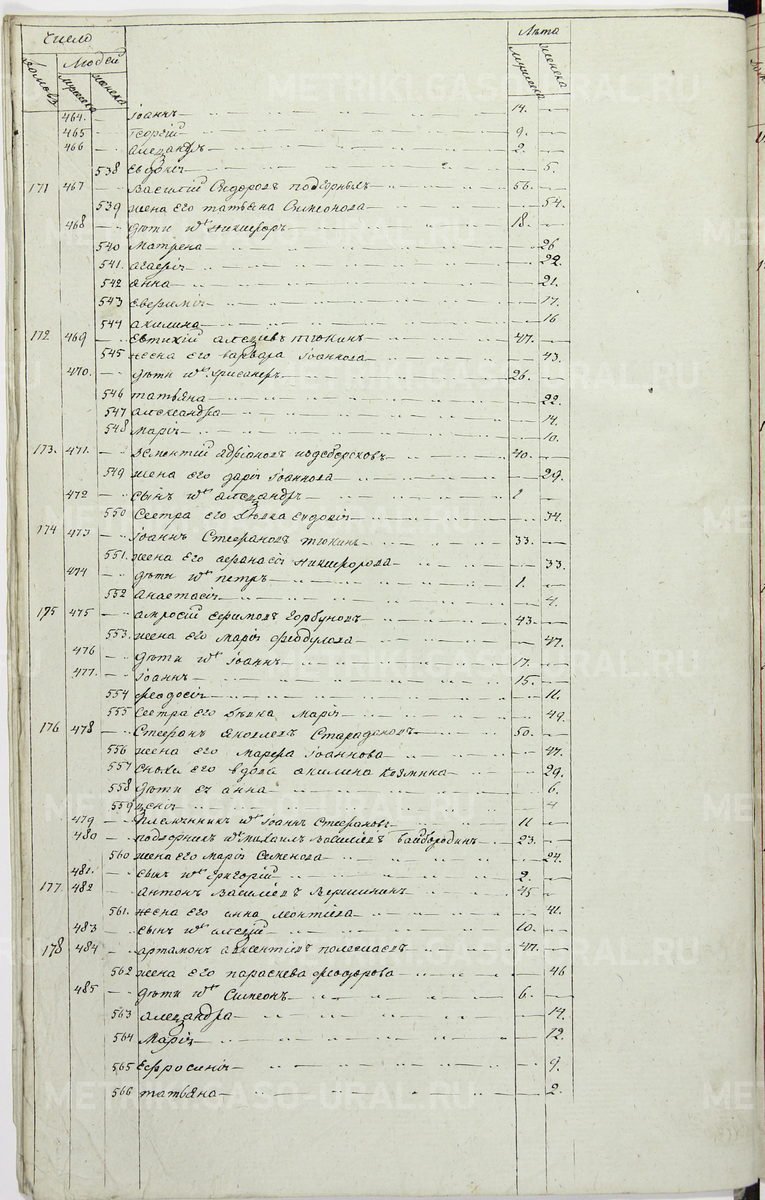 Число
Лѣта
Домовъ
Людей
мужеска
женска
мужеска
женска
464. Іоаннъ 14.
465 Георгій 9.
466 Алеѯандръ 2.
538 Евдокіѧ 5.
171 467 Василій Сидоровъ подгорныхъ 56.
539 жена его татьяна Симеонова 54.
468 дѣти ихъ никифоръ 18.
540 Матрена 26
541. агафіѧ 22.
542 анна 21.
543 евфиміѧ 17.
544 акилина 16
172 469 Евтихій алеѯіевъ тюкинъ 47.
545 жена его варвара Іоаннова 43.
470. дѣти ихъ хрисанфъ 26.
546 татьяна 22.
547 александра 14.
548 Маріѧ 10.
173. 471. адріановъ 40.
549 жена его даріѧ Іоаннова 29.
472 сынъ ихъ алеѯандръ 2
550 Сестра его дѣвка евдокіѧ 34.
174 473 Іоаннъ Стефановъ тюкинъ 33.
551. жена его афанасіѧ никифорова 33.
474 дѣти ихъ петръ 1.
552 анастасіѧ 4.
175 475 амвросій ефимовъ Горбуновъ 43.
553. жена его Маріѧ феодулова 47.
476 дѣти ихъ Іоаннъ 17.
477. Іоаннъ 15.
554 феодосіѧ 11.
555 Сестра его дѣвка Маріѧ 49.
176 478 Стефанъ Яковлевъ 50.
556 жена его Марфа Іоаннова 47.
557 Сноха его вдова акилина козмина 29.
558 дѣти еѧ анна 6.
559 ѯеніѧ 4
479 племѧнникъ ихъ Іоаннъ Стефановъ 11
480 подворникъ ихъ михаилъ василіевъ байбородинъ 23.
560 жена его Маріѧ Семенова 24.
481. сынъ ихъ григорій 2.
177. 482 антонъ василіевъ вершининъ 45
561. жена его анна леонтіева 41.
483 сынъ ихъ алеѯій 10.
178 484 артамонъ авксентіевъ полежаевъ 47.
562 жена его параскева феодорова 46
485 дѣти ихъ Симеонъ 6.
563 алеѯандра 14.
564 Маріѧ 12.
565 Ефросиніѧ 9.
566 татьяна 2.
METRIKI.GASO-URAL.RU